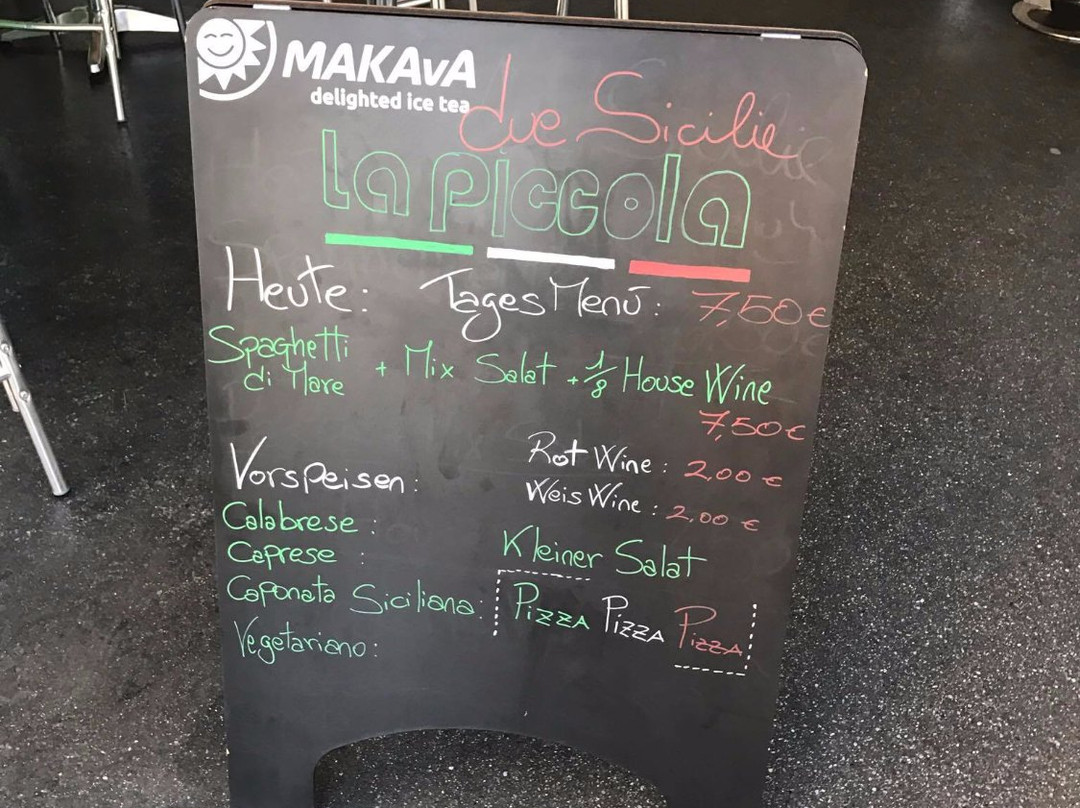 MAKAvA
delighted ice tea
due Sicilie
La Piccola
Heute: Tages Menū: 7,50€
Spaghetti di Mare + Mix Salat + 1/8 House Wine
7,50€
Rot Wine: 2,00 €
Weis Wine: 2,00 €
Vorspeisen:
Calabrese:
Caprese:
Caponata Siciliana:
Vegetariano:
Kleiner Salat
Pizza Pizza Pizza